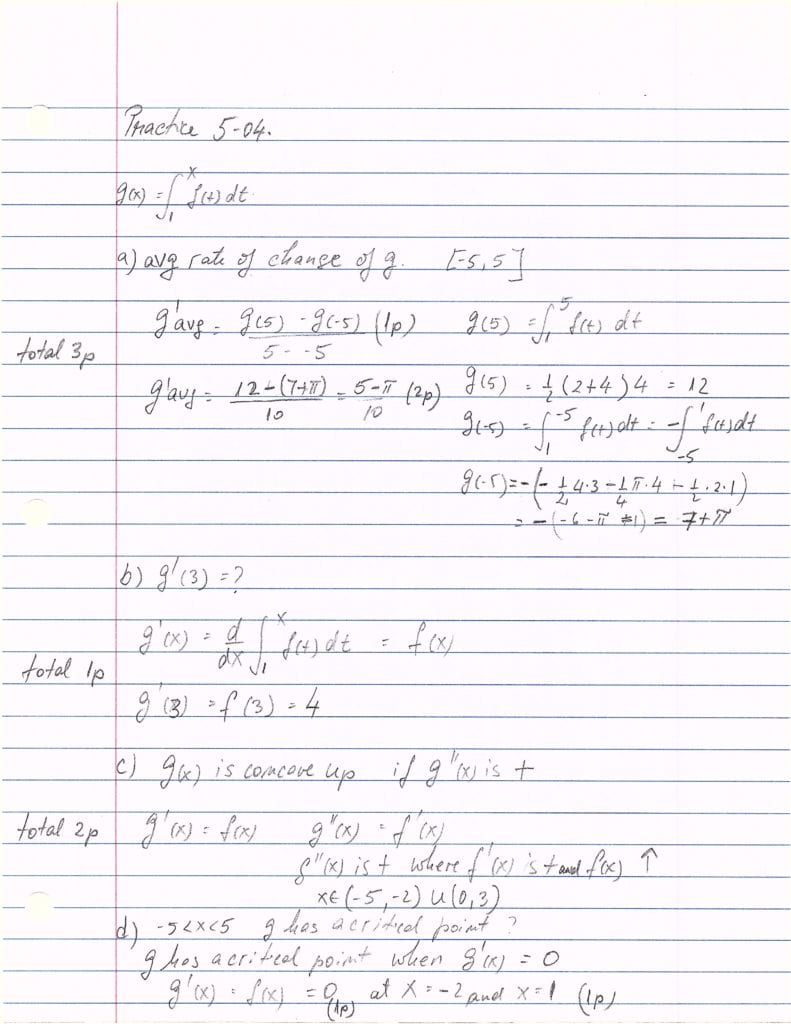 Practice 5-04.
g(x) = ∫₁ˣ f(t) dt
a) avg rate of change of g. [-5, 5]
g'avg = (g(5) - g(-5))/(5 - -5) (1p)    g(5) = ∫₁⁵ f(t) dt
total 3p
g'avg = (12 - (7+π))/10 = (5-π)/10 (2p)    g(5) = 1/2 (2+4) 4 = 12
g(-5) = ∫₁⁻⁵ f(t) dt = -∫₋₅¹ f(t) dt
g(-5) = -(-1/2 4·3 - 1/4 π·4 - 1/2 · 2·1)
= -(-6 - π - 1) = 7+π
b) g'(3) = ?
g'(x) = d/dx ∫₁ˣ f(t) dt = f(x)
total 1p
g'(3) = f(3) = 4
c) g(x) is concave up if g''(x) is +
total 2p    g'(x) = f(x)    g''(x) = f'(x)
g''(x) is + where f'(x) is + and f(x) ↑
x∈(-5, -2) U (0, 3)
d) -5<x<5 g has a critical point ?
g has a critical point when g'(x) = 0
g'(x) = f(x) = 0 (1p) at x = -2 and x = 1 (1p)